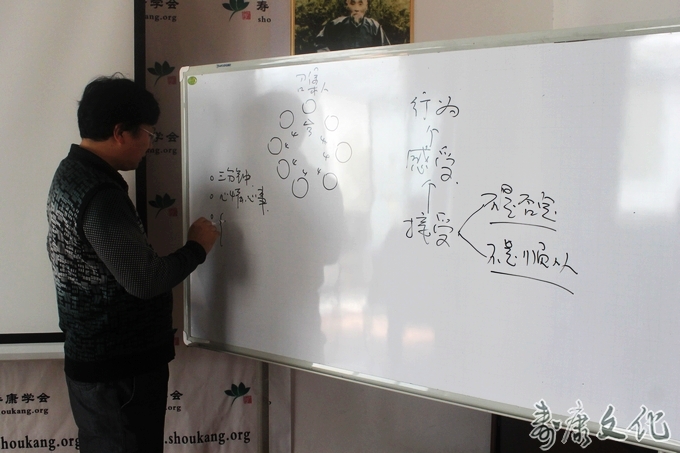 学会
寿
kang.org
shou
行为
感受
接受
不是否定
不是顺从
三分钟
心情、心事
学会
g.org
康学会
oukang.org
shoukang.org
.shoukang.org
寿康文化